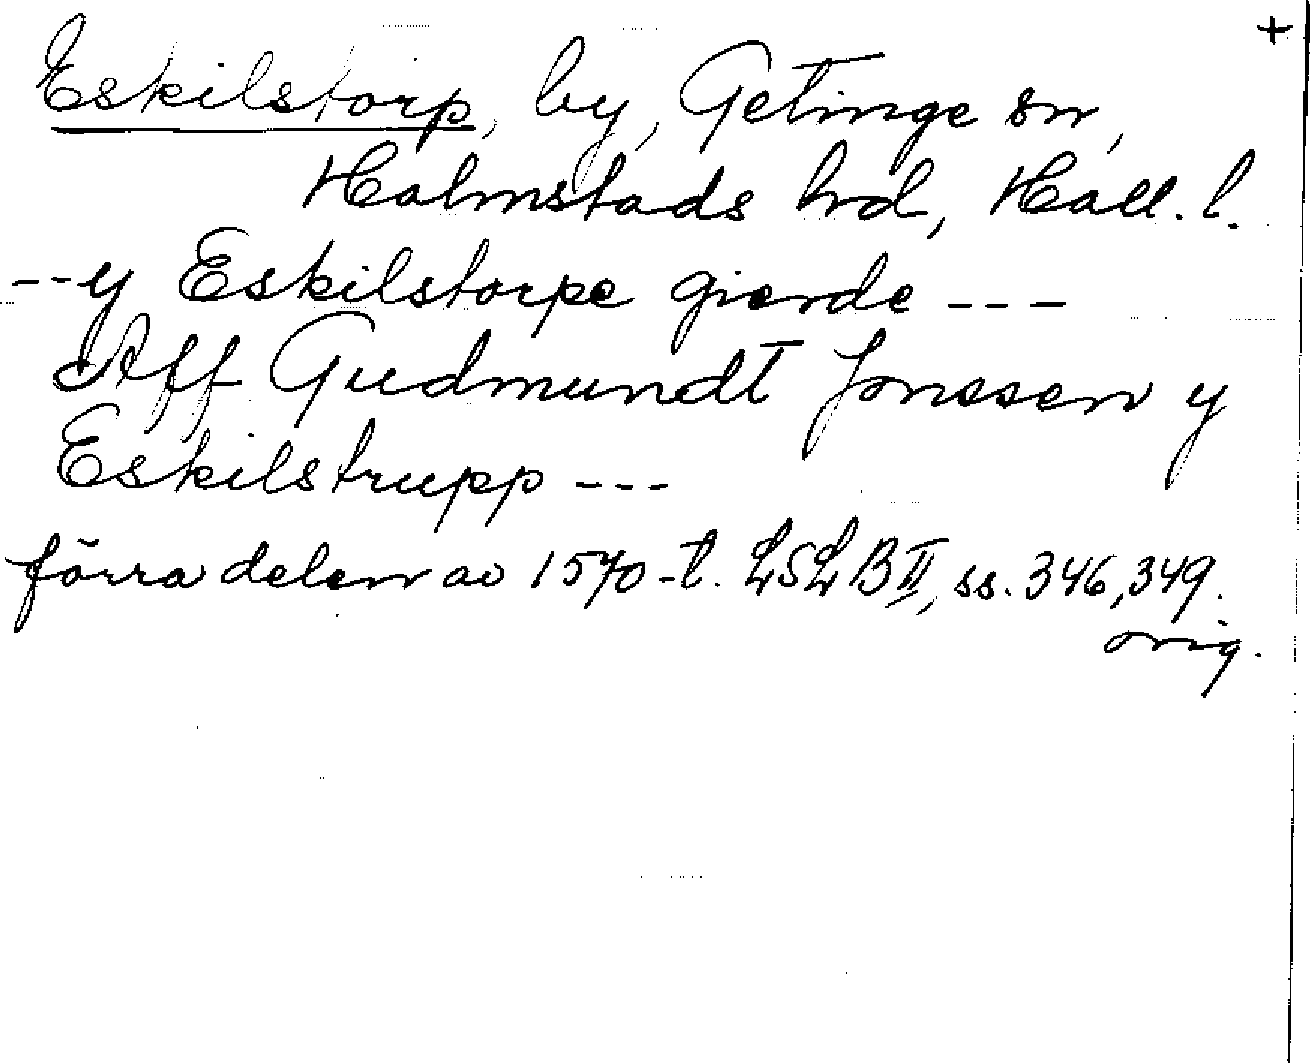 +
Eskilstorp, by, Getinge sn,
Halmstads hrd, Hall. l.
-- y Eskilstorpe gierde ---
Aff Gudmundt Jonssen y
Eskilstrupp ---
förra delen av 1570-t. LSLB II, ss. 346, 349.
orig.